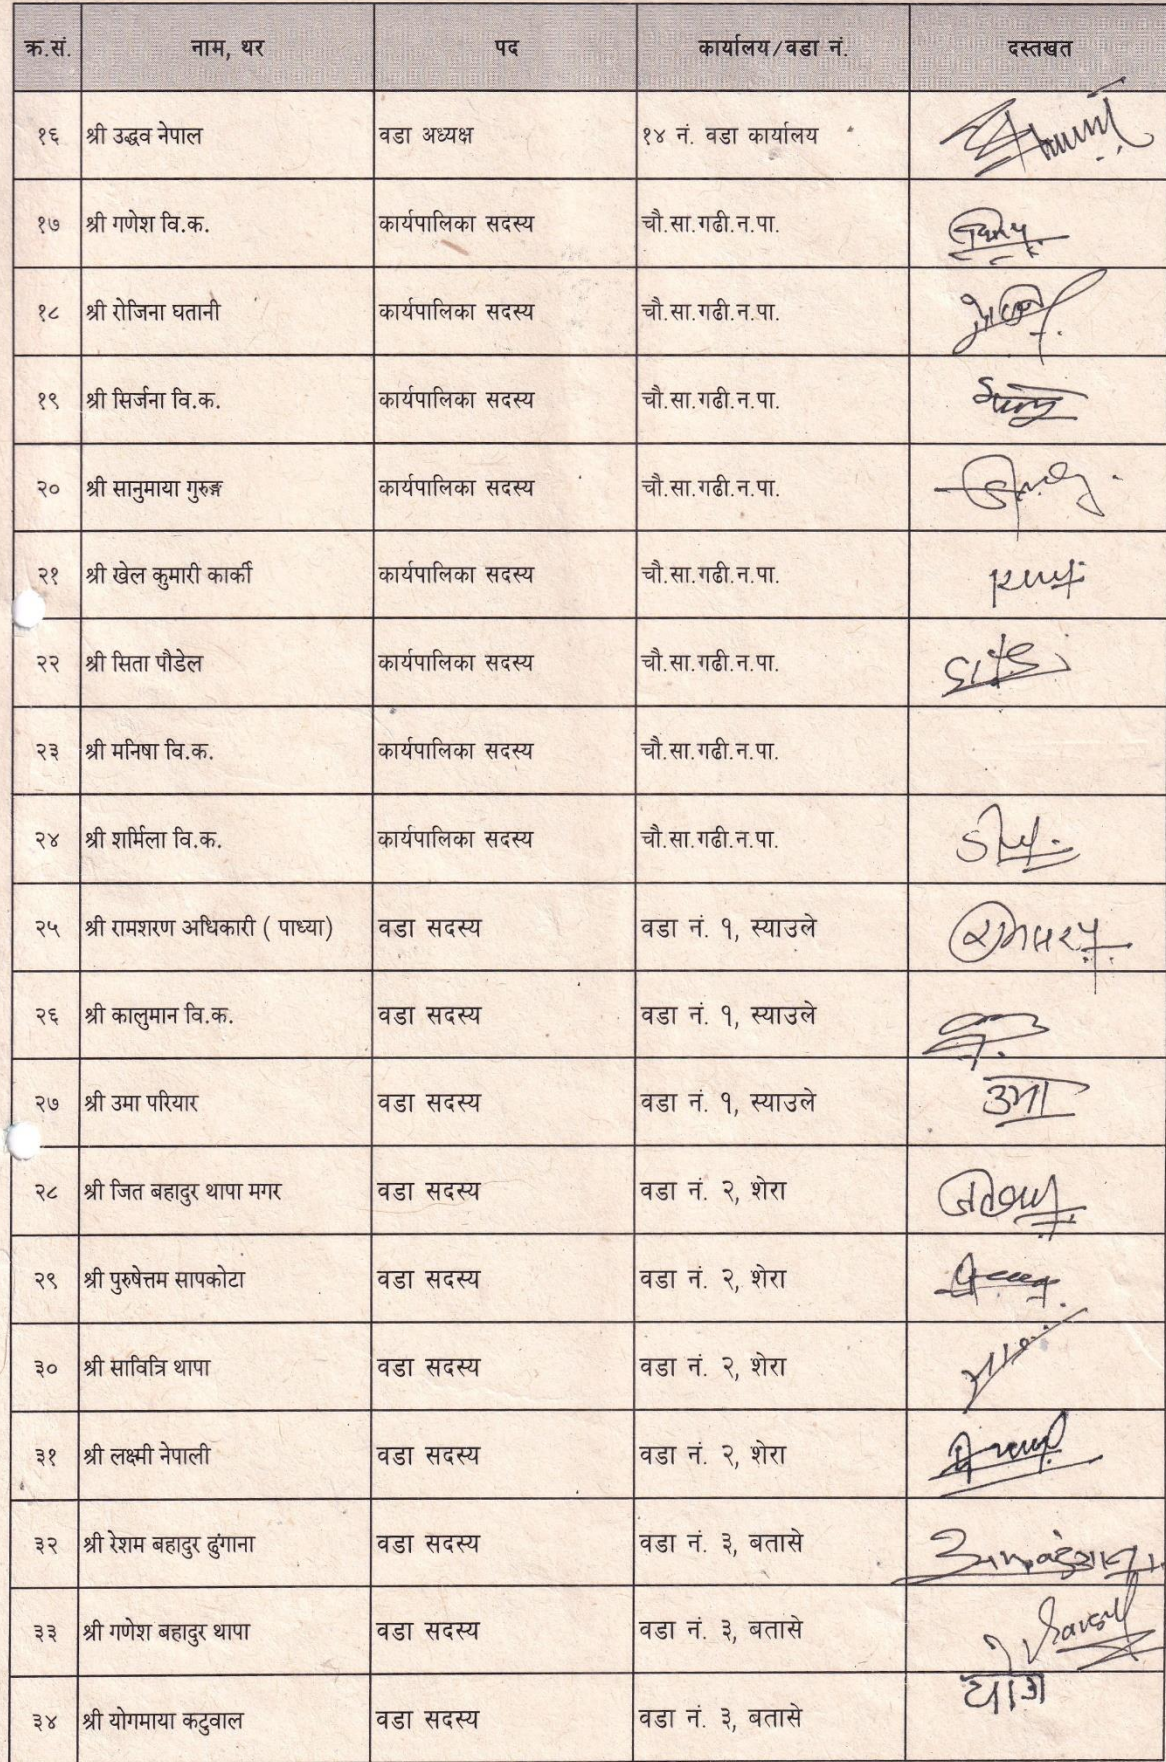 क्र.सं. नाम, थर पद कार्यालय/वडा नं. दस्तखत
१६ श्री उद्धव नेपाल वडा अध्यक्ष १४ नं. वडा कार्यालय
१७ श्री गणेश वि.क. कार्यपालिका सदस्य चौ.सा.गढी.न.पा.
१८ श्री रोजिना घतानी कार्यपालिका सदस्य चौ.सा.गढी.न.पा.
१९ श्री सिर्जना वि.क. कार्यपालिका सदस्य चौ.सा.गढी.न.पा.
२० श्री सानुमाया गुरुङ्ग कार्यपालिका सदस्य चौ.सा.गढी.न.पा.
२१ श्री खेल कुमारी कार्की कार्यपालिका सदस्य चौ.सा.गढी.न.पा.
२२ श्री सिता पौडेल कार्यपालिका सदस्य चौ.सा.गढी.न.पा.
२३ श्री मनिषा वि.क. कार्यपालिका सदस्य चौ.सा.गढी.न.पा.
२४ श्री शर्मिला वि.क. कार्यपालिका सदस्य चौ.सा.गढी.न.पा.
२५ श्री रामशरण अधिकारी ( पाध्या) वडा सदस्य वडा नं. १, स्याउले
२६ श्री कालुमान वि.क. वडा सदस्य वडा नं. १, स्याउले
२७ श्री उमा परियार वडा सदस्य वडा नं. १, स्याउले उमा
२८ श्री जित बहादुर थापा मगर वडा सदस्य वडा नं. २, शेरा
२९ श्री पुरुषेत्तम सापकोटा वडा सदस्य वडा नं. २, शेरा
३० श्री सावित्रि थापा वडा सदस्य वडा नं. २, शेरा
३१ श्री लक्ष्मी नेपाली वडा सदस्य वडा नं. २, शेरा
३२ श्री रेशम बहादुर ढुंगाना वडा सदस्य वडा नं. ३, बतासे
३३ श्री गणेश बहादुर थापा वडा सदस्य वडा नं. ३, बतासे
३४ श्री योगमाया कटुवाल वडा सदस्य वडा नं. ३, बतासे